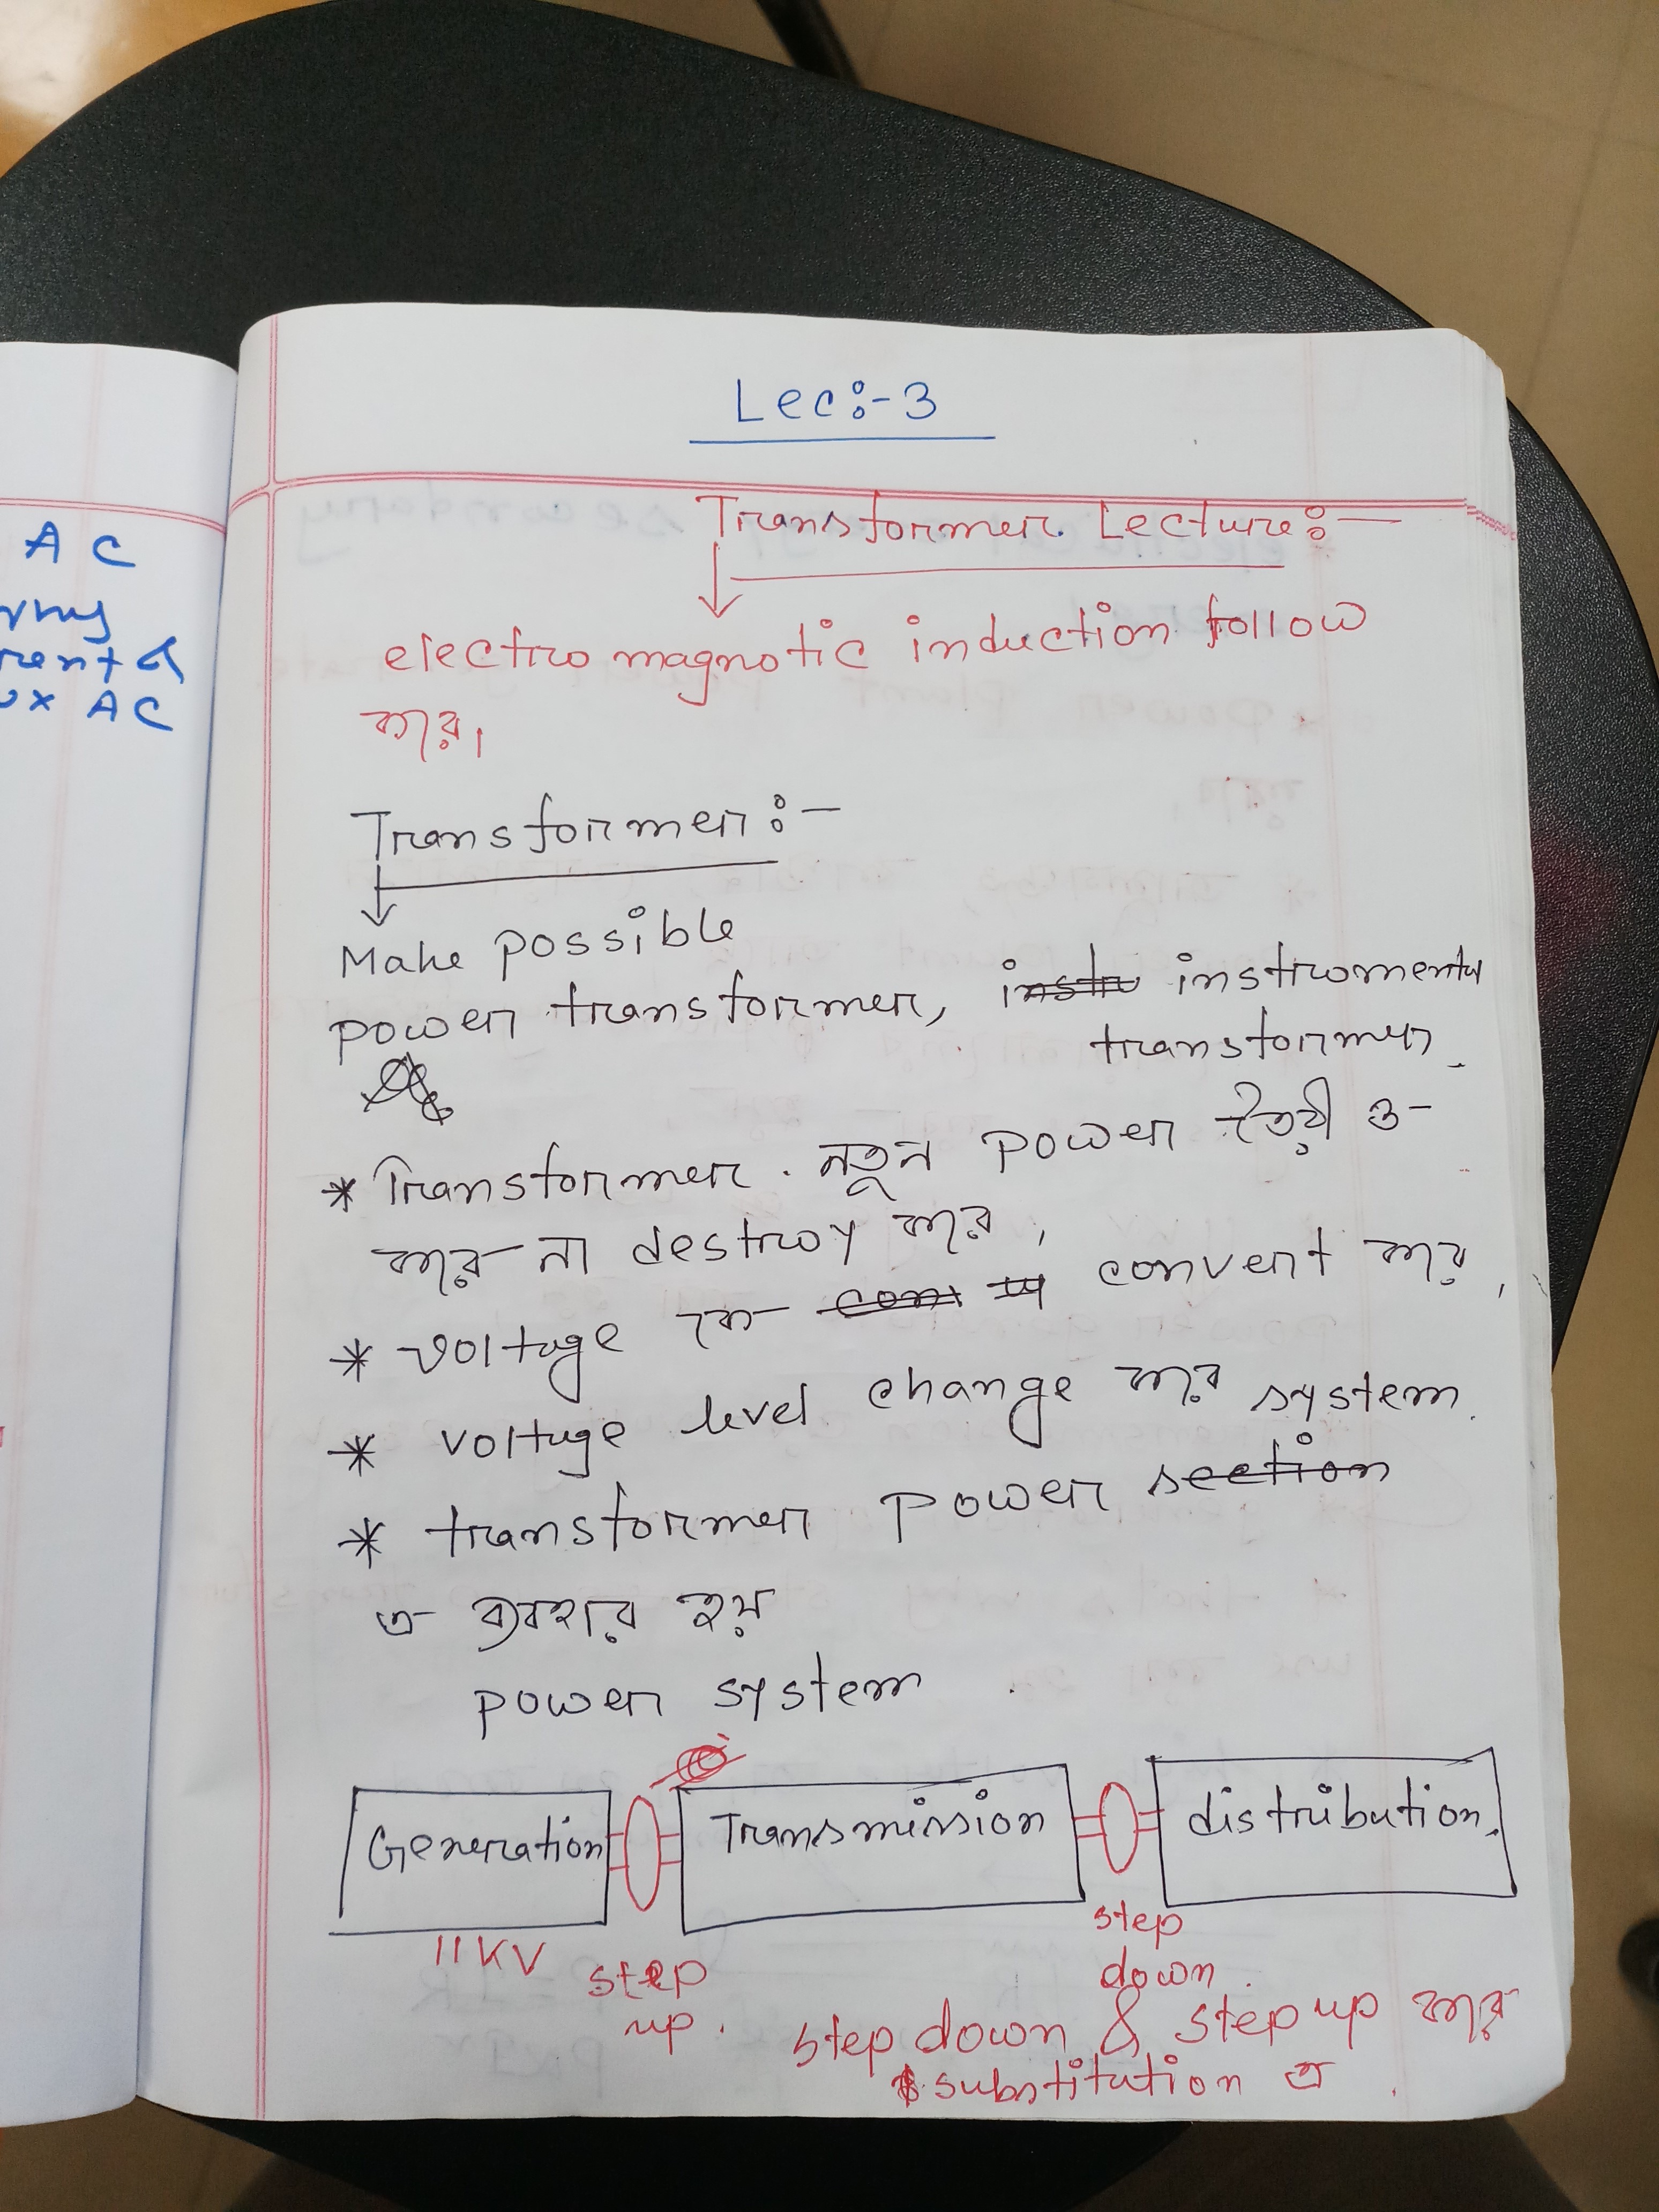 AC
rent
AC
Lec:-3
Transformer Lecture:-
electro magnotic induction follow
করে।
Transformer:-
Make possible
power transformer, instromental
transformer
* Transformer নতুন power তৈরী ও
করে না destroy করে,
* voltage কে convert করে,
* voltage level change করে system.
* transformer power section
এ ব্যবহার হয়
power system
Generation Transmission distribution.
11KV
step
up.
step
down.
step down & step up করে
substitution এ